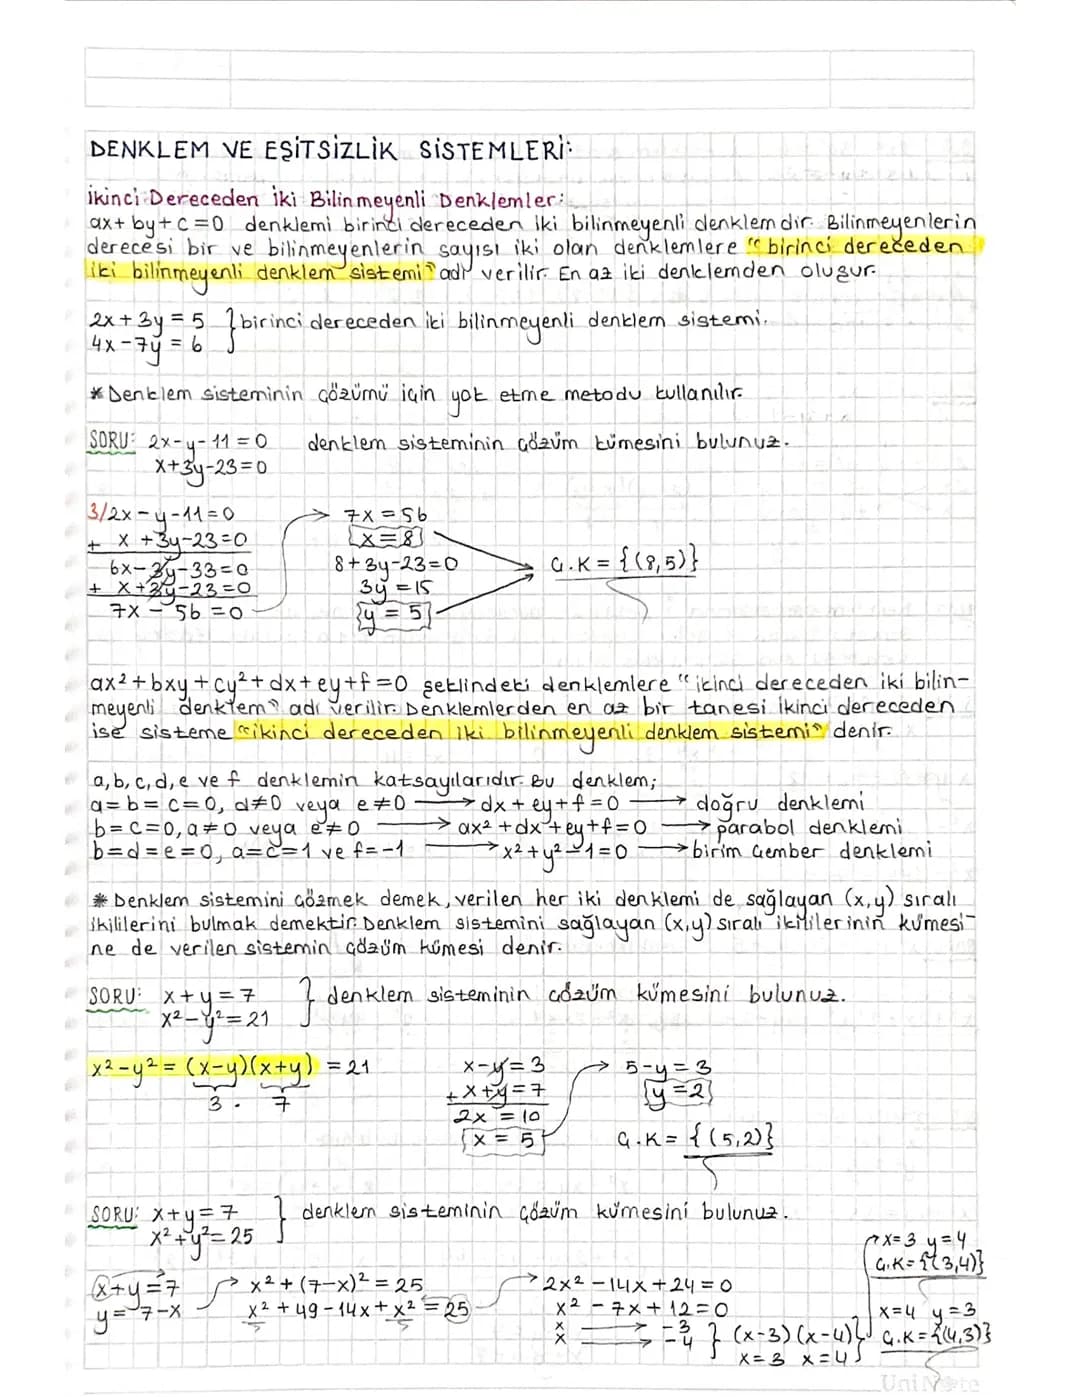 DENKLEM VE EŞİTSİZLİK SİSTEMLERİ:
İkinci Dereceden İki Bilinmeyenli Denklemler:
ax+by+c=0 denklemi birinci dereceden iki bilinmeyenli denklemdir. Bilinmeyenlerin
derecesi bir ve bilinmeyenlerin sayısı iki olan denklemlere "birinci dereceden
iki bilinmeyenli denklem sistemi" adı verilir. En az iki denklemden oluşur.
2x+3y=5 } birinci dereceden iki bilinmeyenli denklem sistemi.
4x-7y=6
* Denklem sisteminin çözümü için yok etme metodu kullanılır.
SORU: 2x-y-11=0 denklem sisteminin çözüm kümesini bulunuz.
x+3y-23=0
3/2x-y-11=0 → 7x=56
+ x+3y-23=0 x=8
6x-3y-33=0 8+3y-23=0 Ç.K={(8,5)}
+ x+3y-23=0 3y=15
7x-56=0 y=5
ax²+bxy+cy²+dx+ey+f=0 şeklindeki denklemlere "ikinci dereceden iki bilin-
meyenli denklem" adı verilir. Denklemlerden en az bir tanesi ikinci dereceden
ise sisteme "ikinci dereceden iki bilinmeyenli denklem sistemi" denir.
a,b,c,d,e ve f denklemin katsayılarıdır. Bu denklem;
a=b=c=0, d≠0 veya e≠0 → dx+ey+f=0 → doğru denklemi
b=c=0, a≠0 veya e≠0 → ax²+dx+ey+f=0 → parabol denklemi
b=d=e=0, a=c=1 ve f=-1 → x²+y²-1=0 → birim çember denklemi
* Denklem sistemini çözmek demek, verilen her iki denklemi de sağlayan (x,y) sıralı
ikililerini bulmak demektir. Denklem sistemini sağlayan (x,y) sıralı ikililerinin kümesi-
ne de verilen sistemin çözüm kümesi denir.
SORU: x+y=7 } denklem sisteminin çözüm kümesini bulunuz.
x²-y²=21
x²-y²=(x-y)(x+y)=21 x-y=3 → 5-y=3
3 . 7 + x+y=7 y=2
2x=10
x=5 Ç.K={(5,2)}
SORU: x+y=7 } denklem sisteminin çözüm kümesini bulunuz.
x²+y²=25
x=3 y=4
Ç.K={(3,4)}
x+y=7 → x²+(7-x)²=25 → 2x²-14x+24=0
y=7-x x²+49-14x+x²=25 x²-7x+12=0 x=4 y=3
x → -3
x → -4 } (x-3)(x-4) Ç.K={(4,3)}
x=3 x=4
UniNote